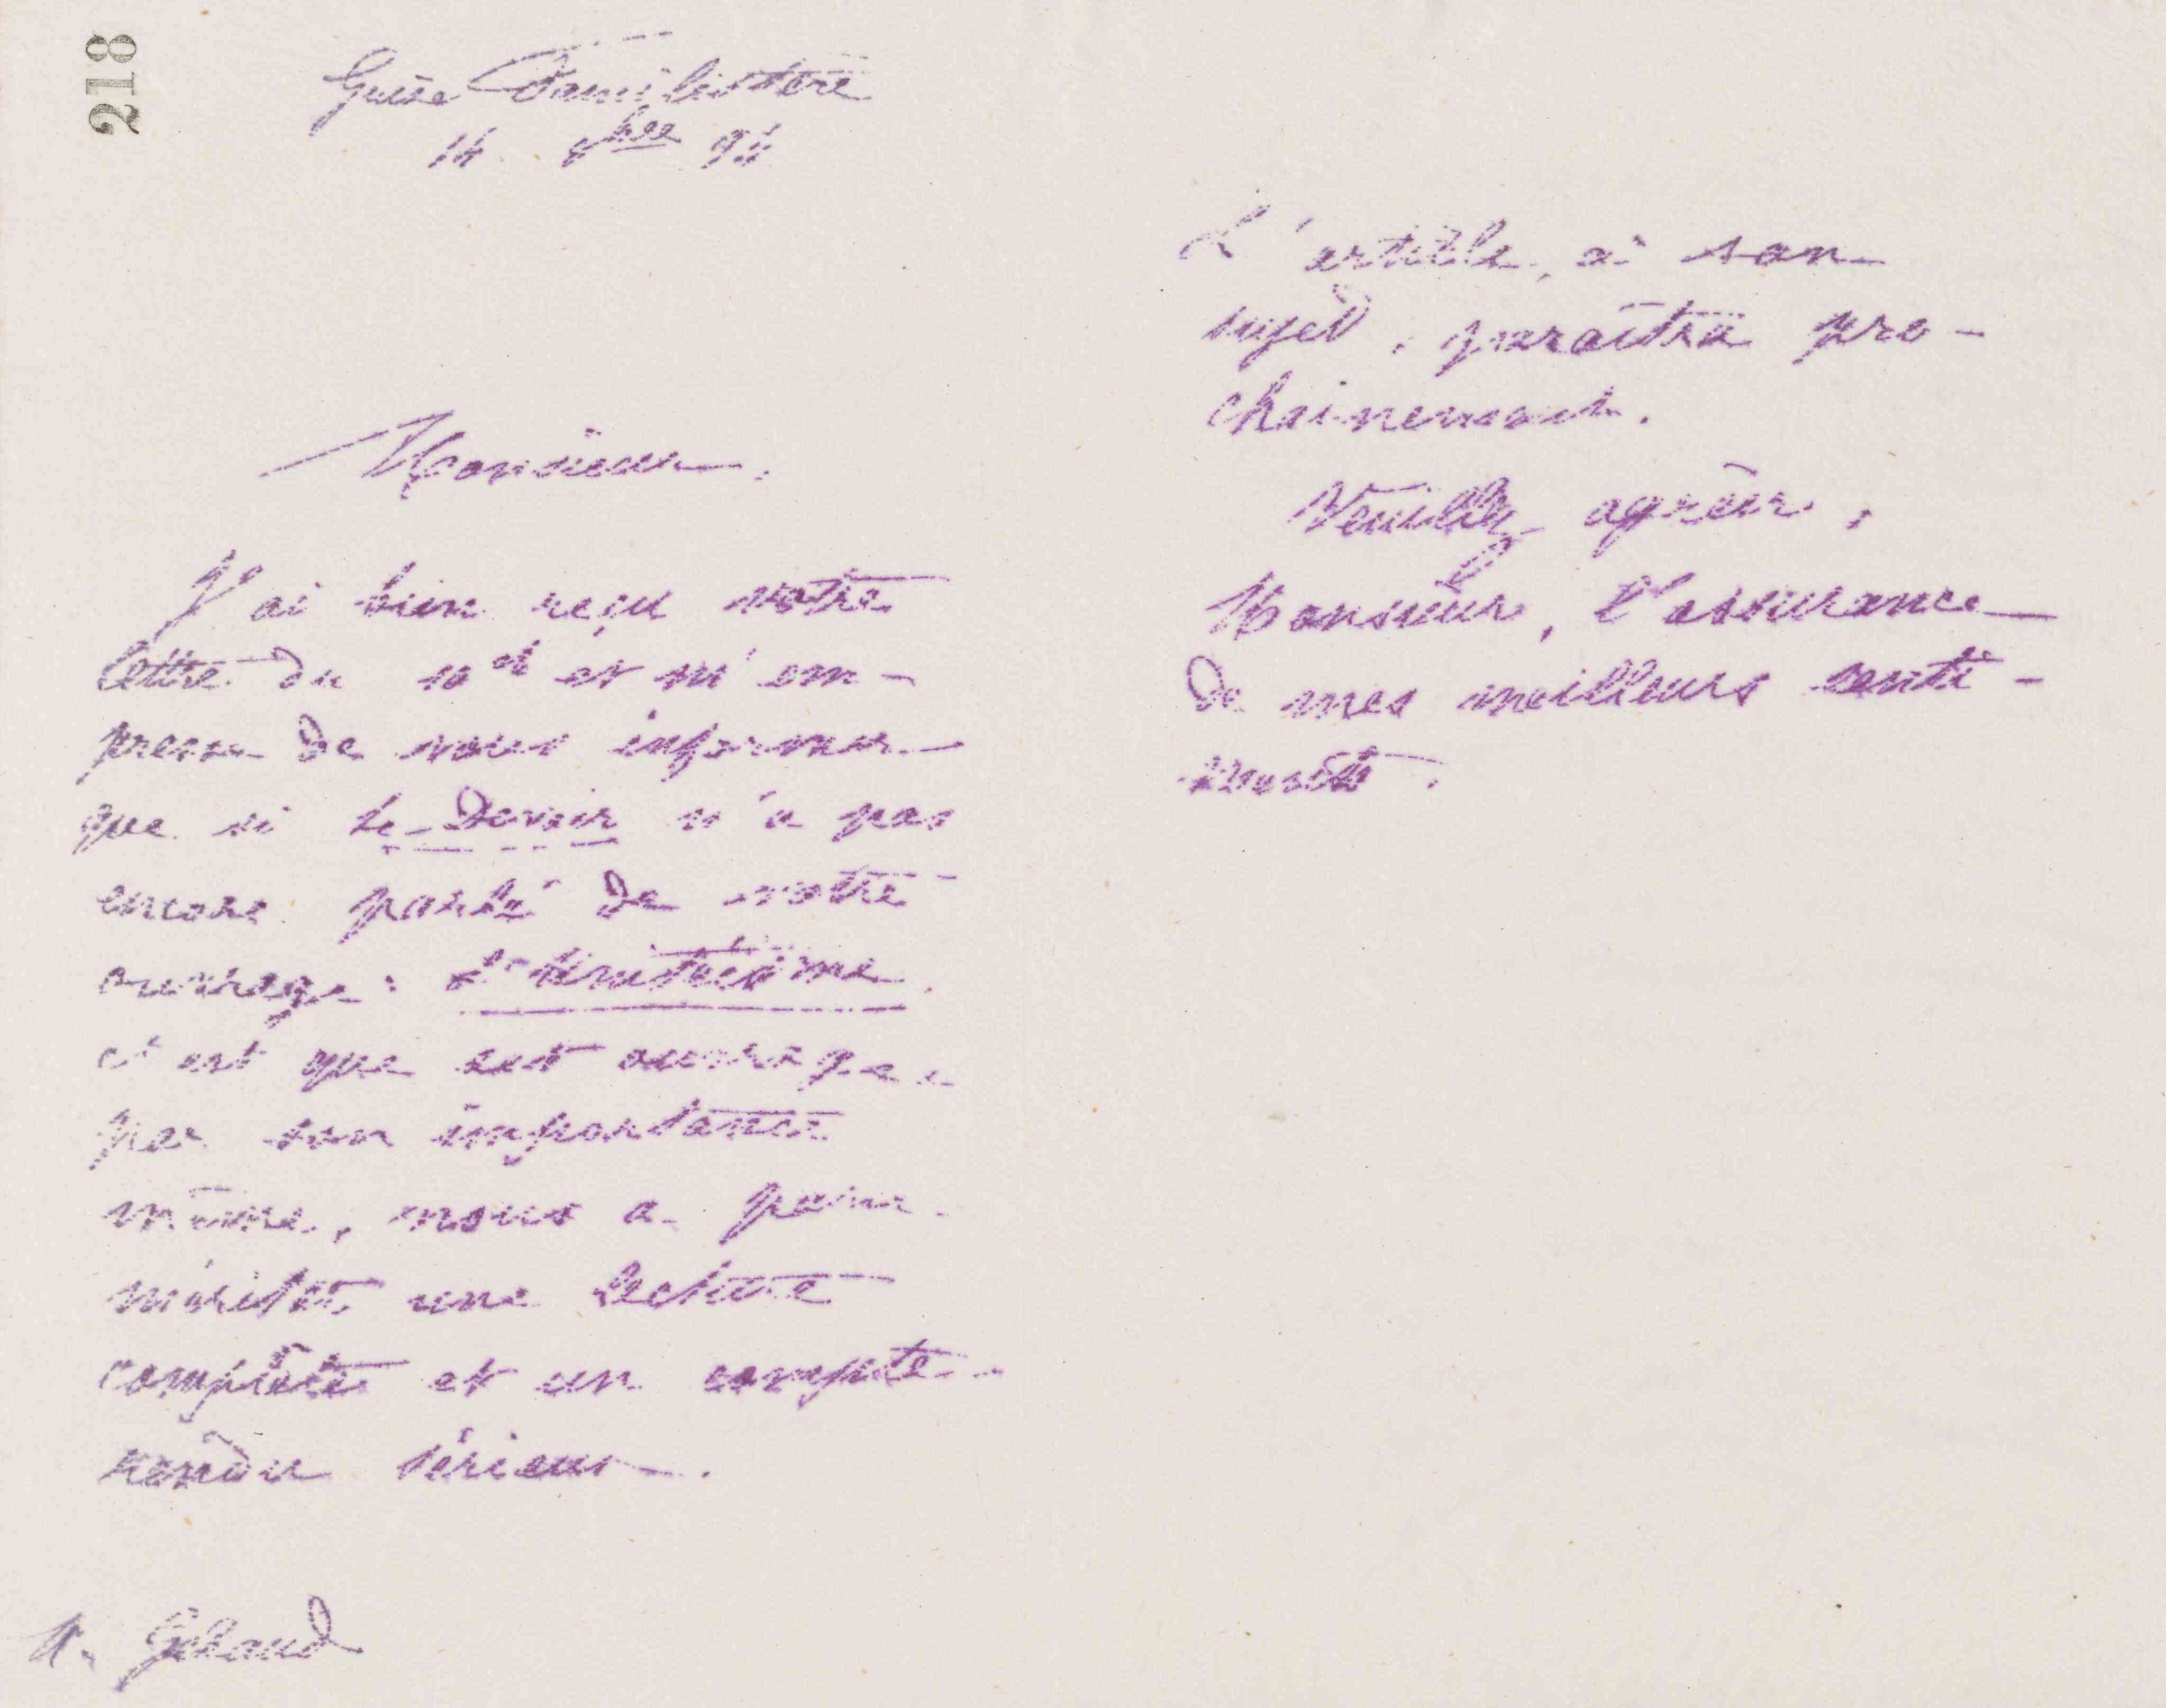 218
Guise Familistère
14 9bre 94
Monsieur,
J'ai bien reçu votre
lettre du 10 ct et m'em-
presse de vous informer
que si Le Devoir n'a pas
encore parlé de votre
ouvrage :
c'est que cet ouvrage,
par son importance
même, nous a paru
mériter une lecture
complète et un compte-
rendu sérieux.
L'article, à son
sujet, paraîtra pro-
chainement.
Veuillez agréer,
Monsieur, l'assurance
de mes meilleurs senti-
ments.